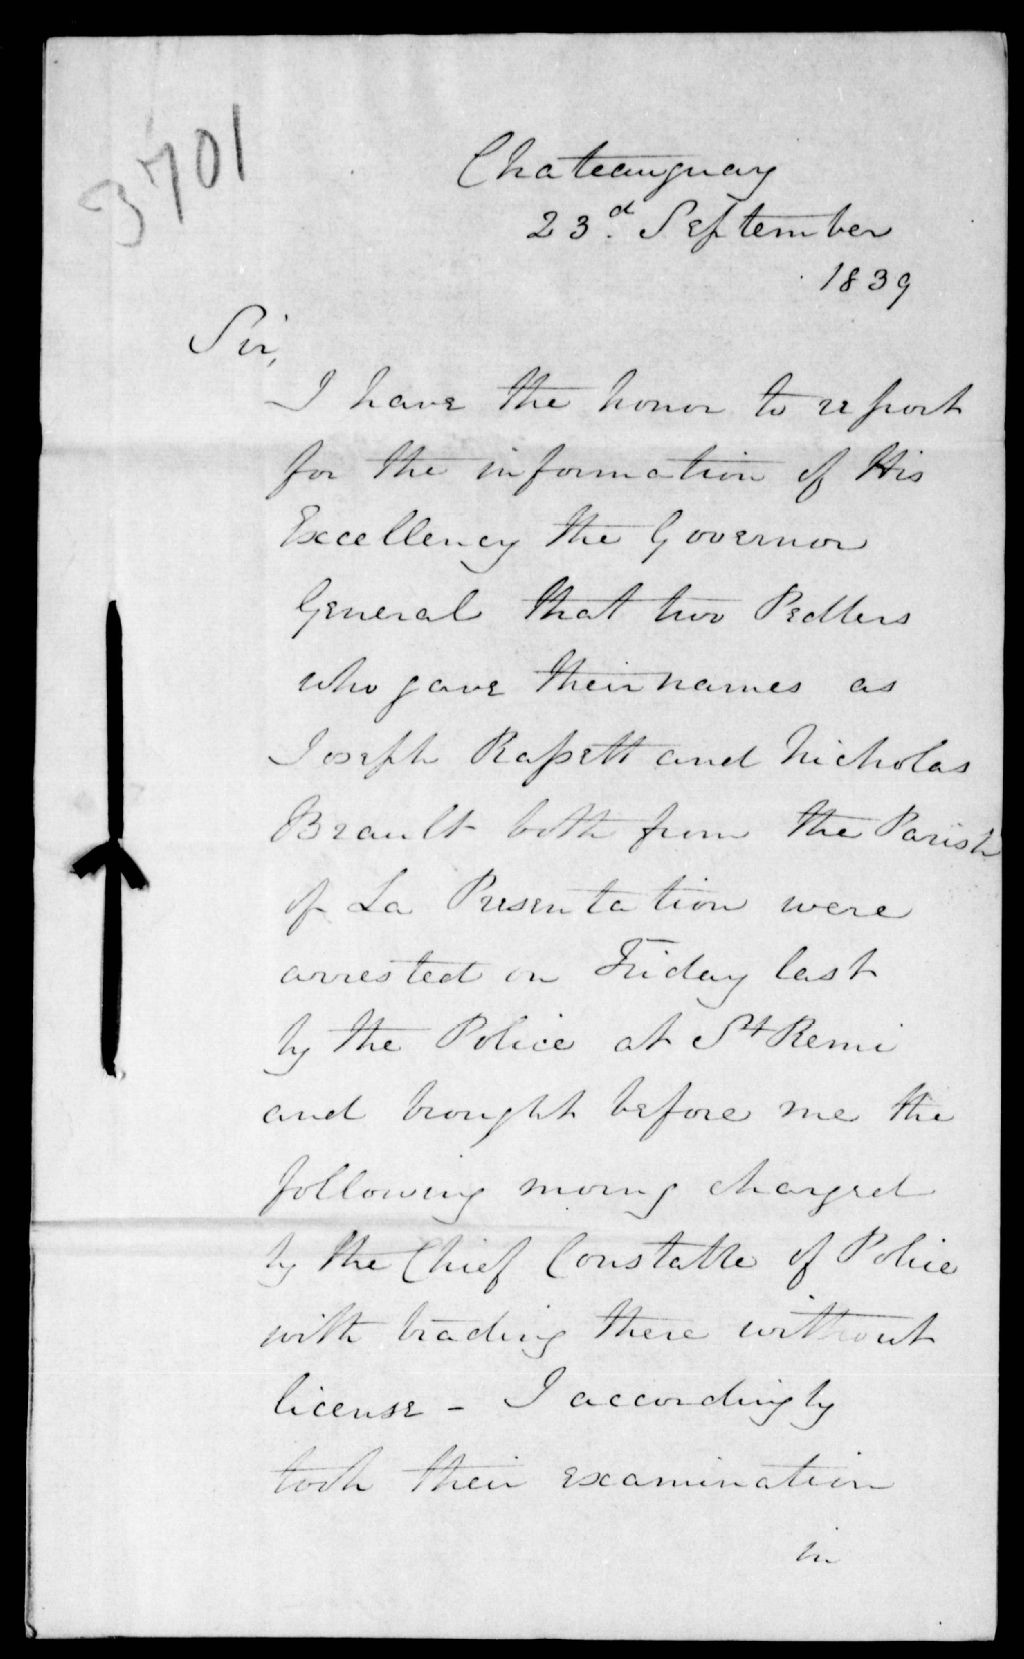 3701
Chateauguay
23d. September
1839
Sir,
I have the honor to report
for the information of His
Excellency the Governor
General that two Pedlers
who gave their names as
Joseph Rassett and Nicholas
Brault both from the Parish
of La Presentation were
arrested on Friday last
by the Police at St Remi
and brought before me the
following morng charged
by the Chief Constable of Police
with trading there without
license - I accordingly
took their examination
in